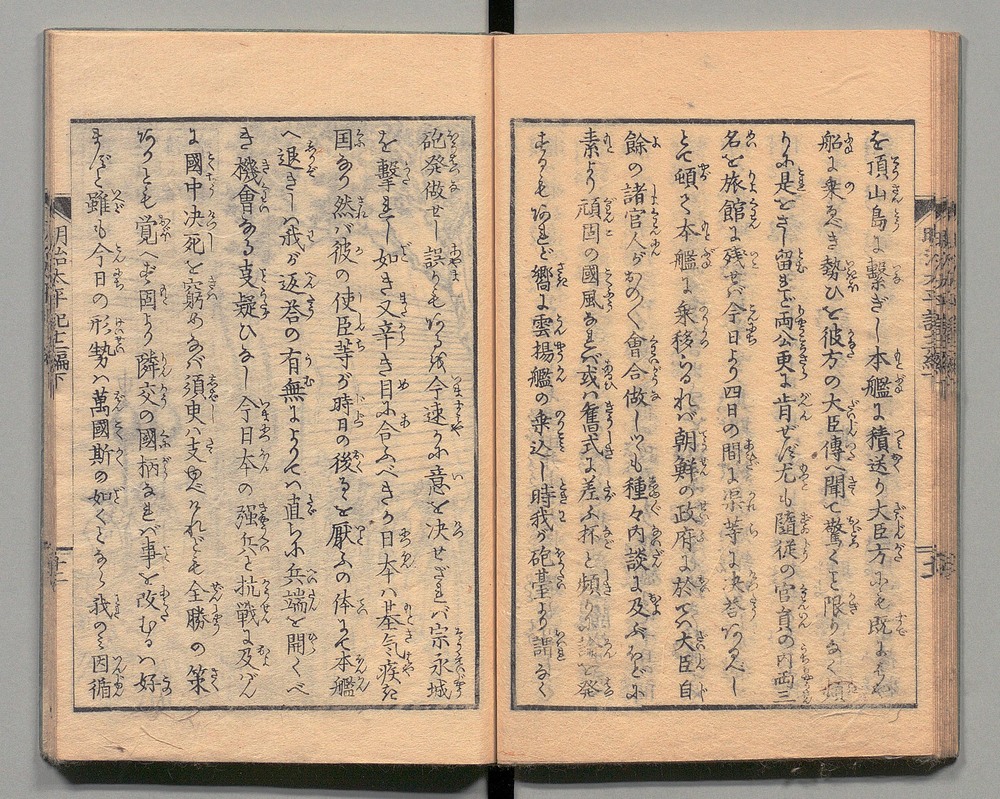 を頂山島に繋ぎし本艦に積送り大臣方にも既にはや
船に乗るべき勢ひを彼方の大臣傳へ聞て驚くこと限りなく
りに是をさし留れど両公更に肯ぜず尤も隨従の官員の内両三
名を旅館に残せば今日より四日の間に渠等に决答
とて頓て本艦に乗移らるれバ朝鮮の政府に於てハ大臣自
餘の諸官人がおの〱會合做しつゝも種々内談に及ぶほどに
素より頑固の國風なれバ或ハ舊式に差ふ抔と頻り
するもあれど嚮に雲揚艦の乗込し時我が砲臺より謂なく
砲発做せし誤りもあるを今速かに意を决せざれバ永宗城
を撃れし如き又辛き目に合ふべきか日本ハ
国なり然バ彼の使臣等が時日の後るゝを厭ふの体にて本艦
へ退きしハ我が返答の有無によりてハ直ちに兵端を開くべ
き機會なる支疑ひなし今日本の强兵と抗戦に及バん
に國中决死を窮めなバ須臾ハ支ゆべけれども全勝の策
ありとも覚へず固より隣交の國柄なれバ事を改むるハ好
まずと雖も今日の形勢ハ萬國斯の如くとならバ我のミ因循
明治太平記十二編下
十二